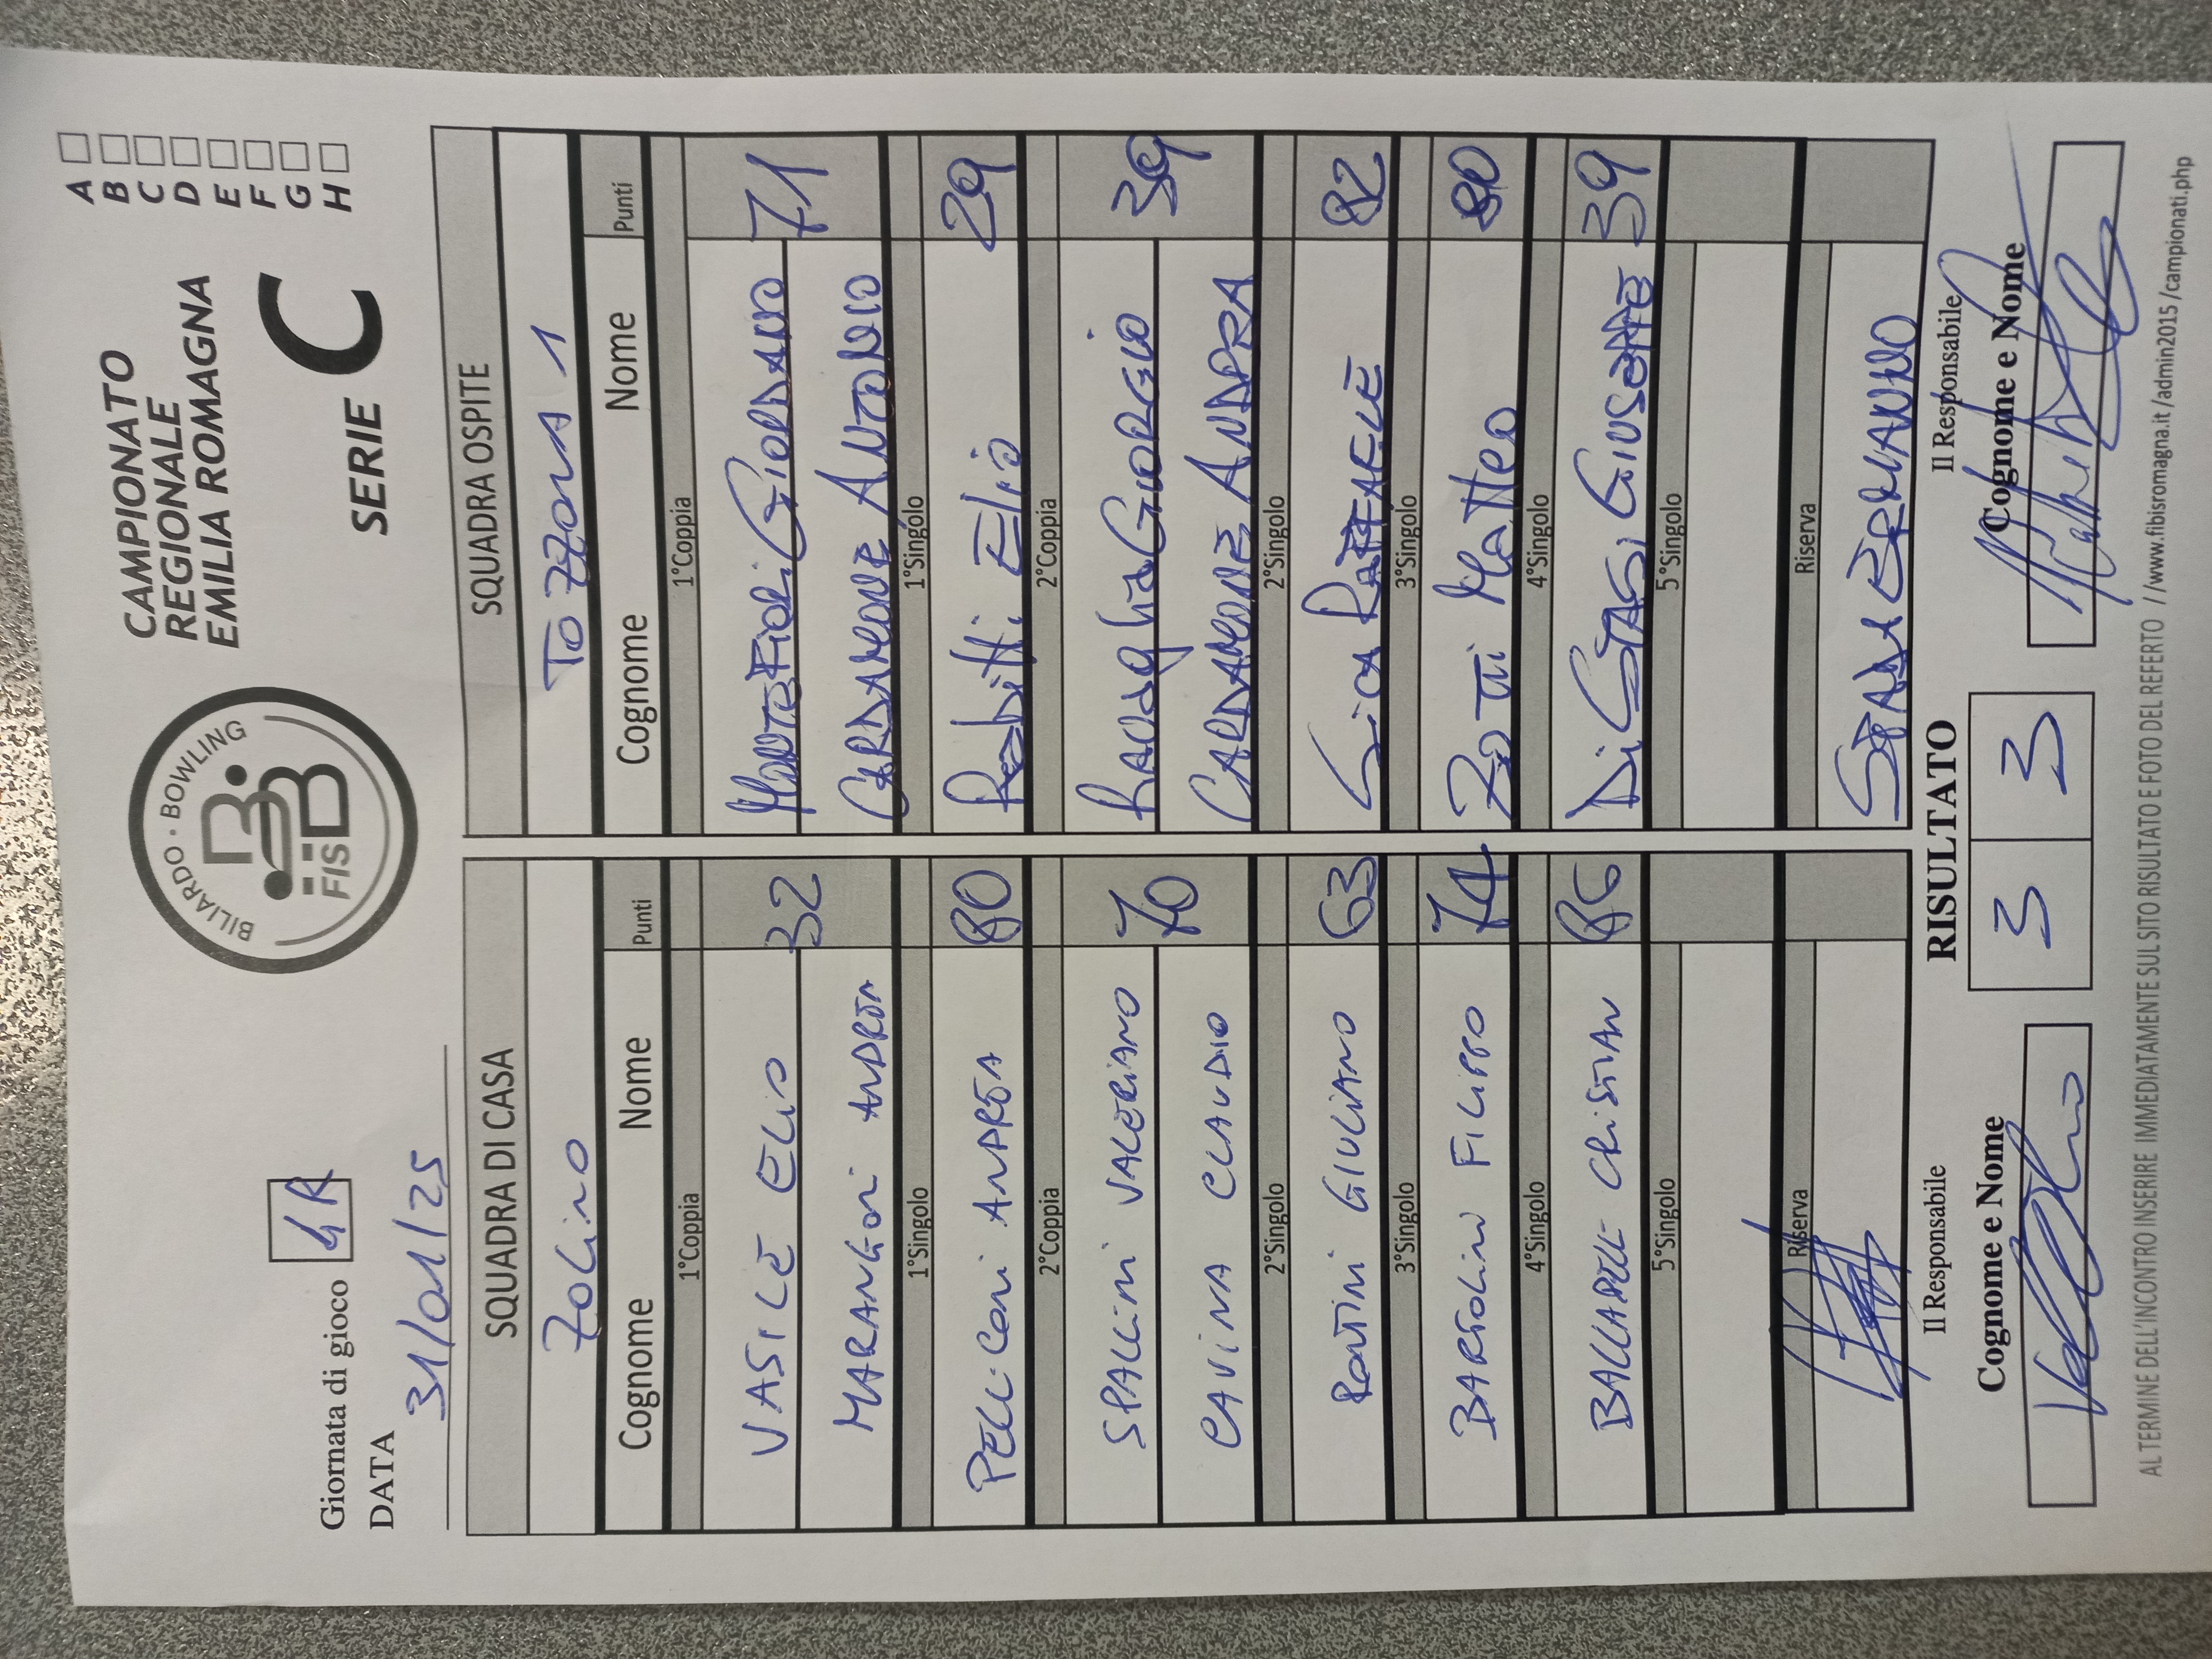 Giornata di gioco 4R
DATA 31/01/25
BILIARDO · BOWLING
FISBB
CAMPIONATO
REGIONALE
EMILIA ROMAGNA
SERIE C
A
B
C
D
E
F
G
H
SQUADRA DI CASA
ZOLINO
Cognome Nome Punti
1°Coppia
VASILE ELIO 32
MARANGONI ANDREA
1°Singolo
PELLICONI ANDREA 80
2°Coppia
SPALLINI VALERIANO 70
CAVINA CLAUDIO
2°Singolo
RONTINI GIULIANO 63
3°Singolo
BARTOLINI FILIPPO 74
4°Singolo
CRISTIAN 86
5°Singolo
Riserva
SQUADRA OSPITE
TOZZONA 1
Cognome Nome Punti
1°Coppia
MONTEFIORI GIORDANO 71
CARDAMONE ANTONIO
1°Singolo
Rabitti Elio 29
2°Coppia
GIORGIO 39
CARDAMONE ANDREA
2°Singolo
RAFFAELE 82
3°Singolo
Matteo 80
4°Singolo
Di STASI GIUSEPPE 39
5°Singolo
Riserva
ERMANNO
Il Responsabile
Cognome e Nome
RISULTATO
3 3
Il Responsabile
Cognome e Nome
AL TERMINE DELL'INCONTRO INSERIRE IMMEDIATAMENTE SUL SITO RISULTATO E FOTO DEL REFERTO //www.fibisromagna.it /admin2015 /campionati.php